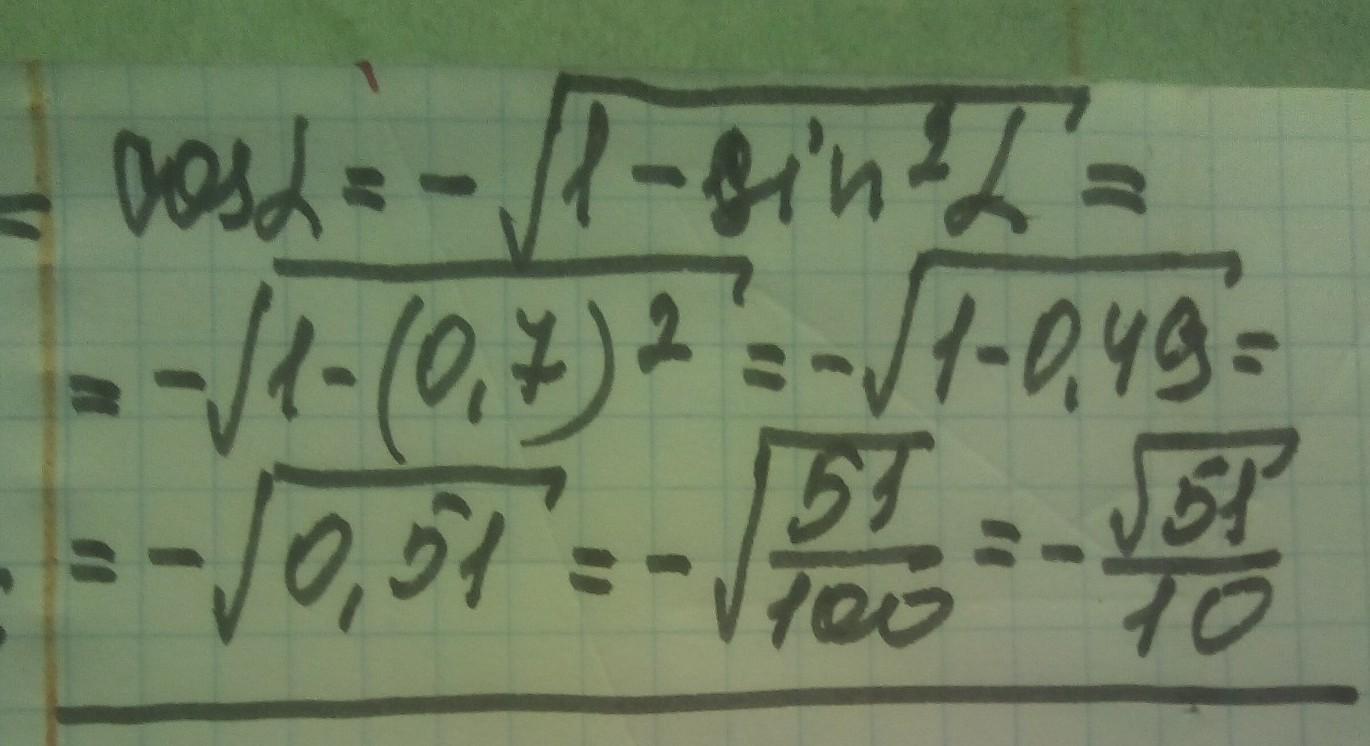 = cosα = -√(1 - sin²α) =
= -√(1-(0,7)²) = -√(1-0,49) =
= -√(0,51) = -√(51/100) = -√51/10